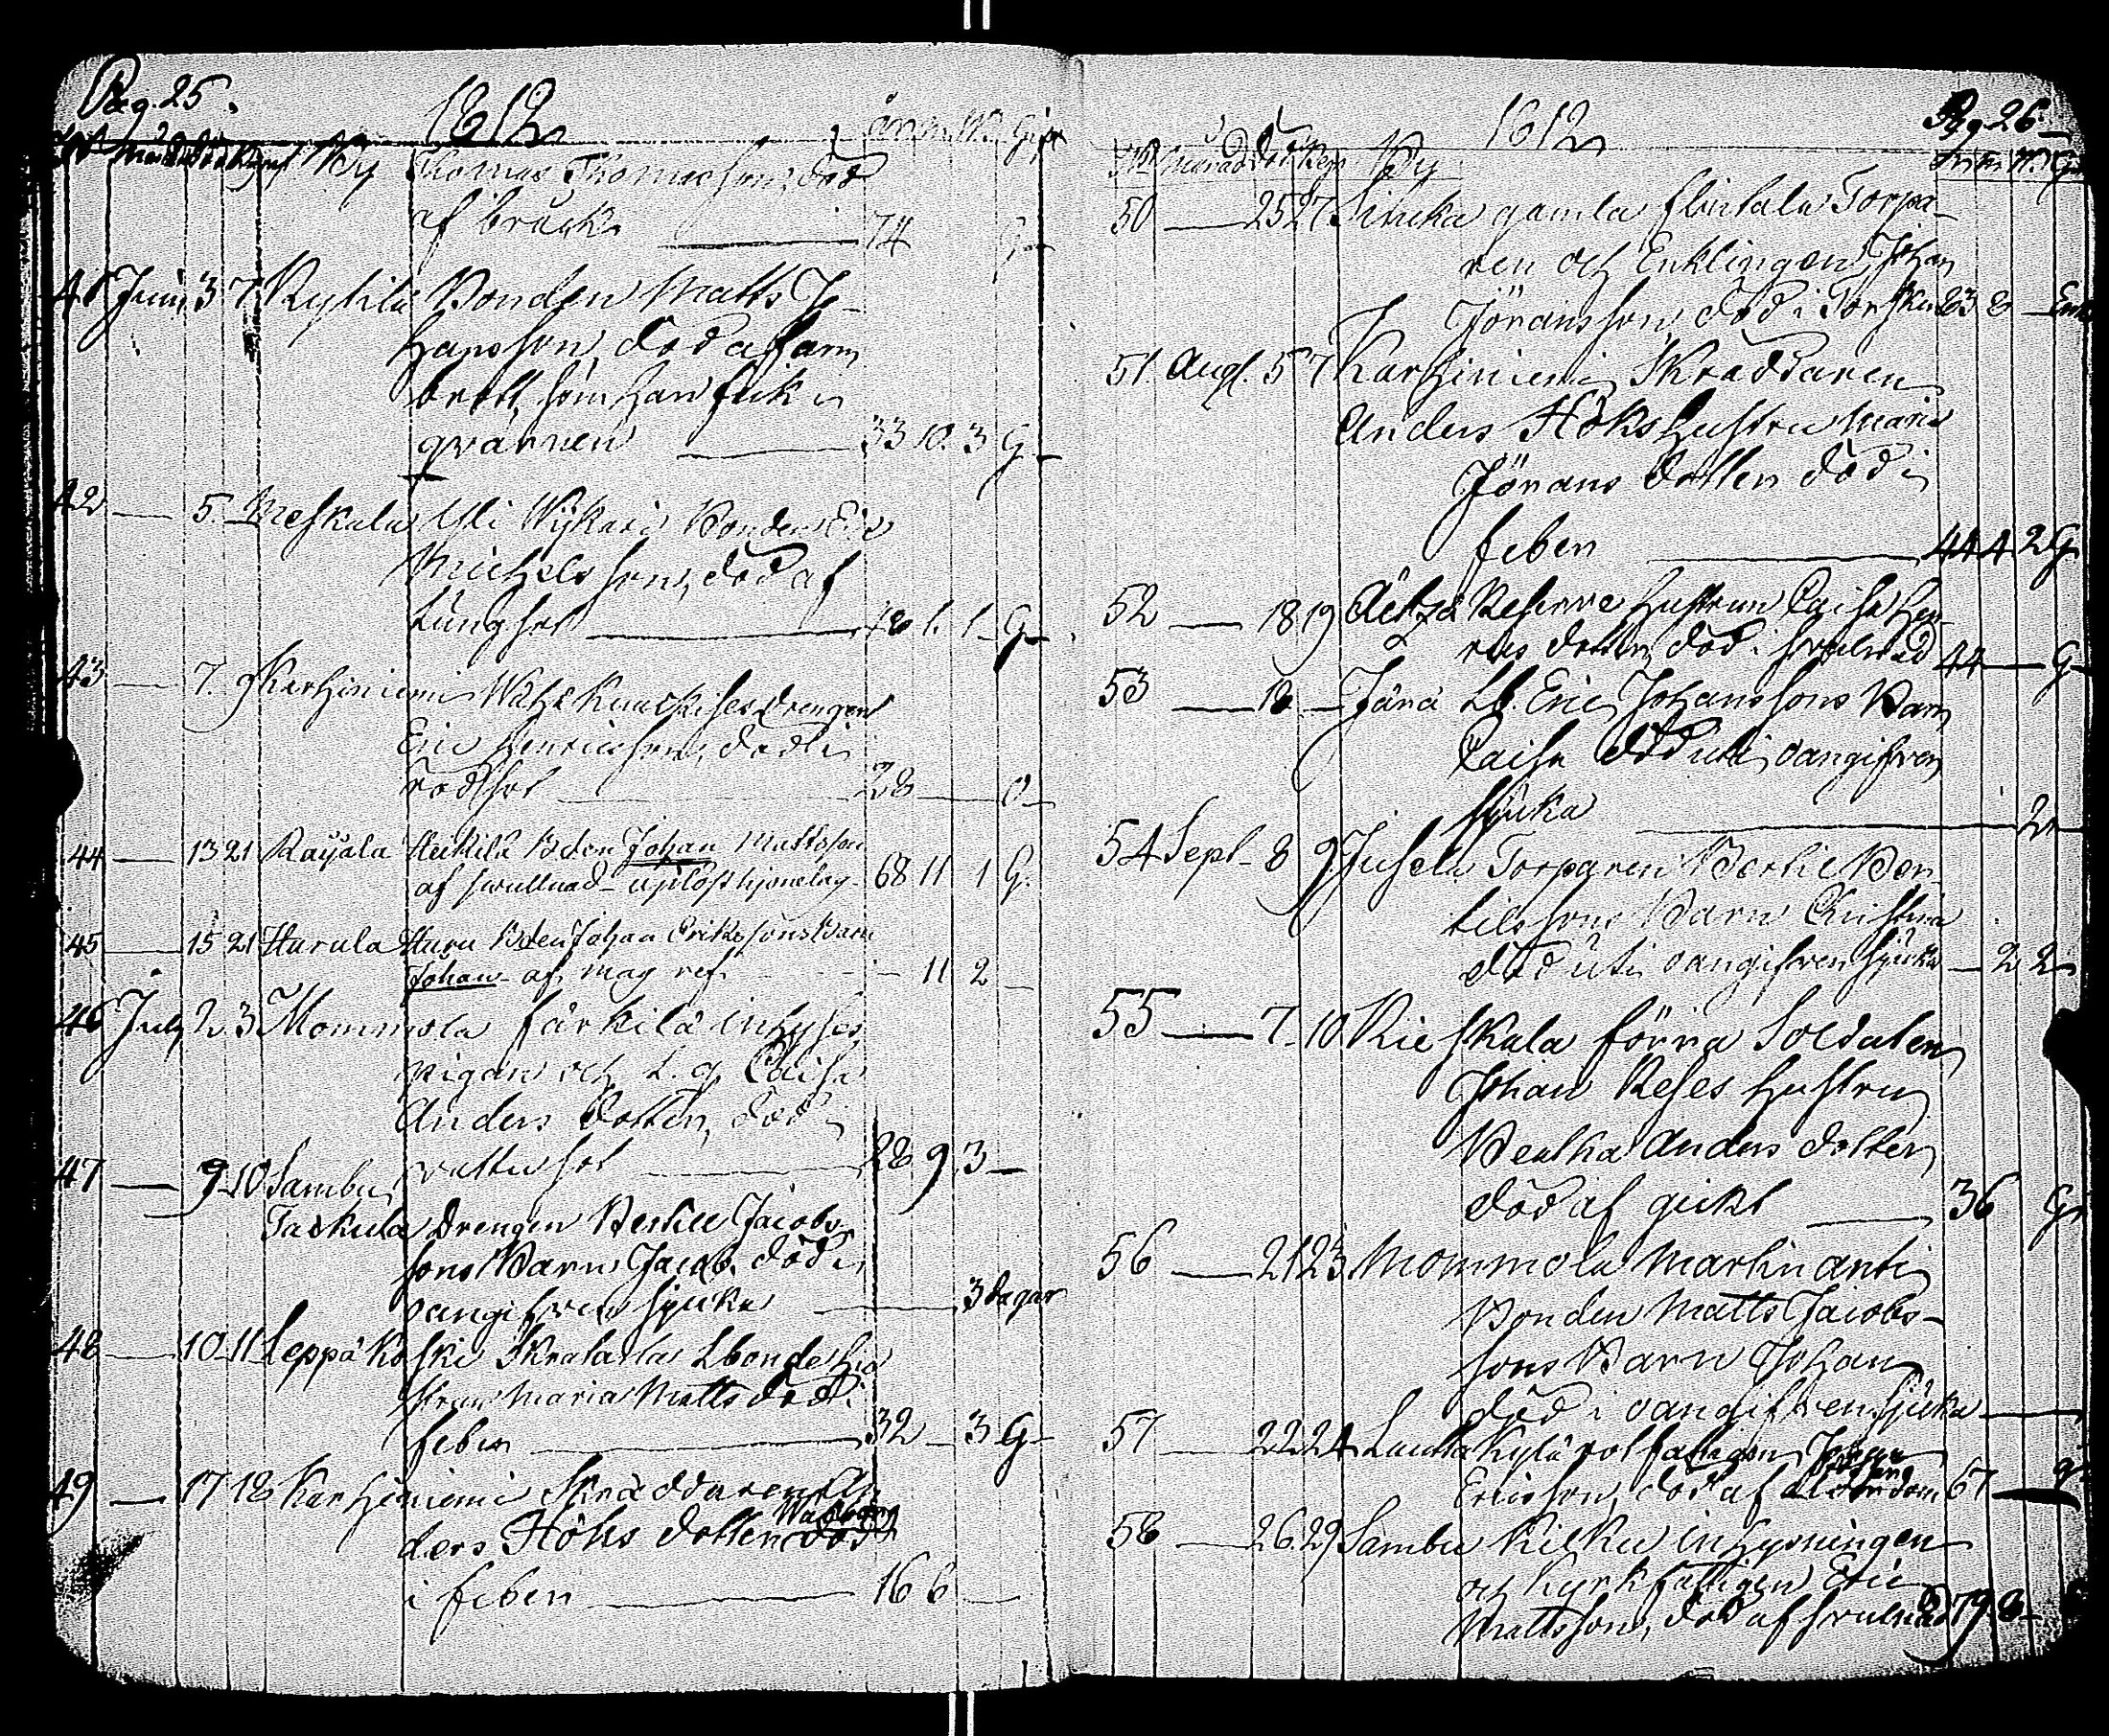 Pag. 25.
1812
By Thomas Thomasson, död
af bråck 74 G
41 Juni 3 7 Kylilä Bonden Matts Jo-
hansson, död af arm
brott, som han fick i
qvarnen 33 10. 3 G
42 — 5. — Meskala Yli Wÿkari Bonden Eric
Michelsson, död af
lungsot 48 1. 1. G
43 — 7. 9 Karhiniemi drengen
Eric Henricsson, död i
rödsot 28 — O
44 — 13 21 Raijala Heikilä Bden Johan Mattsson
af svullnad – uplöst hjonelag. 68 11 1 G.
45 — 15 21 Hurula Huru Bden Johan Erikssons Barn
Johan af mag ref. — 11 2 —
46 July 2. 3 Mommola Färkilä inhyses
pigan och L. q. Caisa
Anders dotter, död i
vattusot 28 9. 3 —
47 — 9 10 Sambu
Taskula Drengen Bertill Jacobs
sons Barn Jacob, död i
oangifven sjuka — 3 dagar
48 — 10 11 Leppäkoski Skralaslas Lbondes hu
strun Maria Matts död i
feber 32 — 3 G
49 — 17 18 Karhiniemi Skräddaren An
ders Höks dotter Walborg död
i feber 16 6 —
Pag. 26
1812
No Månad död Begr By
50 — 25 27 gamla Torpa-
ren och Enklingen Johan
Jöransson, död i Torsken 83 8 — Enk
51. Aug. 5 7 Karhiniemi Skräddaren
Anders Höks hustru Maria
Jörans dotter död i
feber 44 4 2 G
52 — 18 19 Äetsä Reserve hustrun Caisa Hen
rics dotter, död i svulnad 44 — G
53 — 18 — Järä Lb. Eric Johanssons Barn
Caisa död uti oangifven
sjuka — 2
54 Sept. 8 9. Jusela Torparen Bertil Ber
tilssons Barn Christina
död uti oangifven sjuka — 2 2
55 — 7. 10 Rieskala förra Soldaten
Johan Reses hustru
Beatha Anders dotter
död af gickt 36 G
56 — 21 23 Mommola Martin anti
Bonden Matts Jacobs-
sons Barn Johan
död i oangifven sjuka —
57 — 22 24 Lauttakylä rotfattigen Johan
Ericsson, död af ålderdom 67 — g
58 — 26. 29 Sambu Kilku inhysningen
och kyrkfattigen Eric
Mattsson, död af svulnad 79 8 —